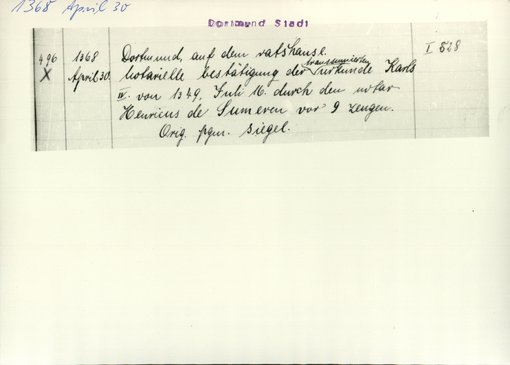 1368 April 30
Dortmund Stadt
496 1368 Dortmund, auf dem ratshause. I 528
X April 30. Notarielle bestätigung der transsumierten Urkunde Karls
IV. von 1349. Juli 16. durch den notar
Henricus de Sumeren vor 9 zeugen.
Orig. pgm. Siegel.